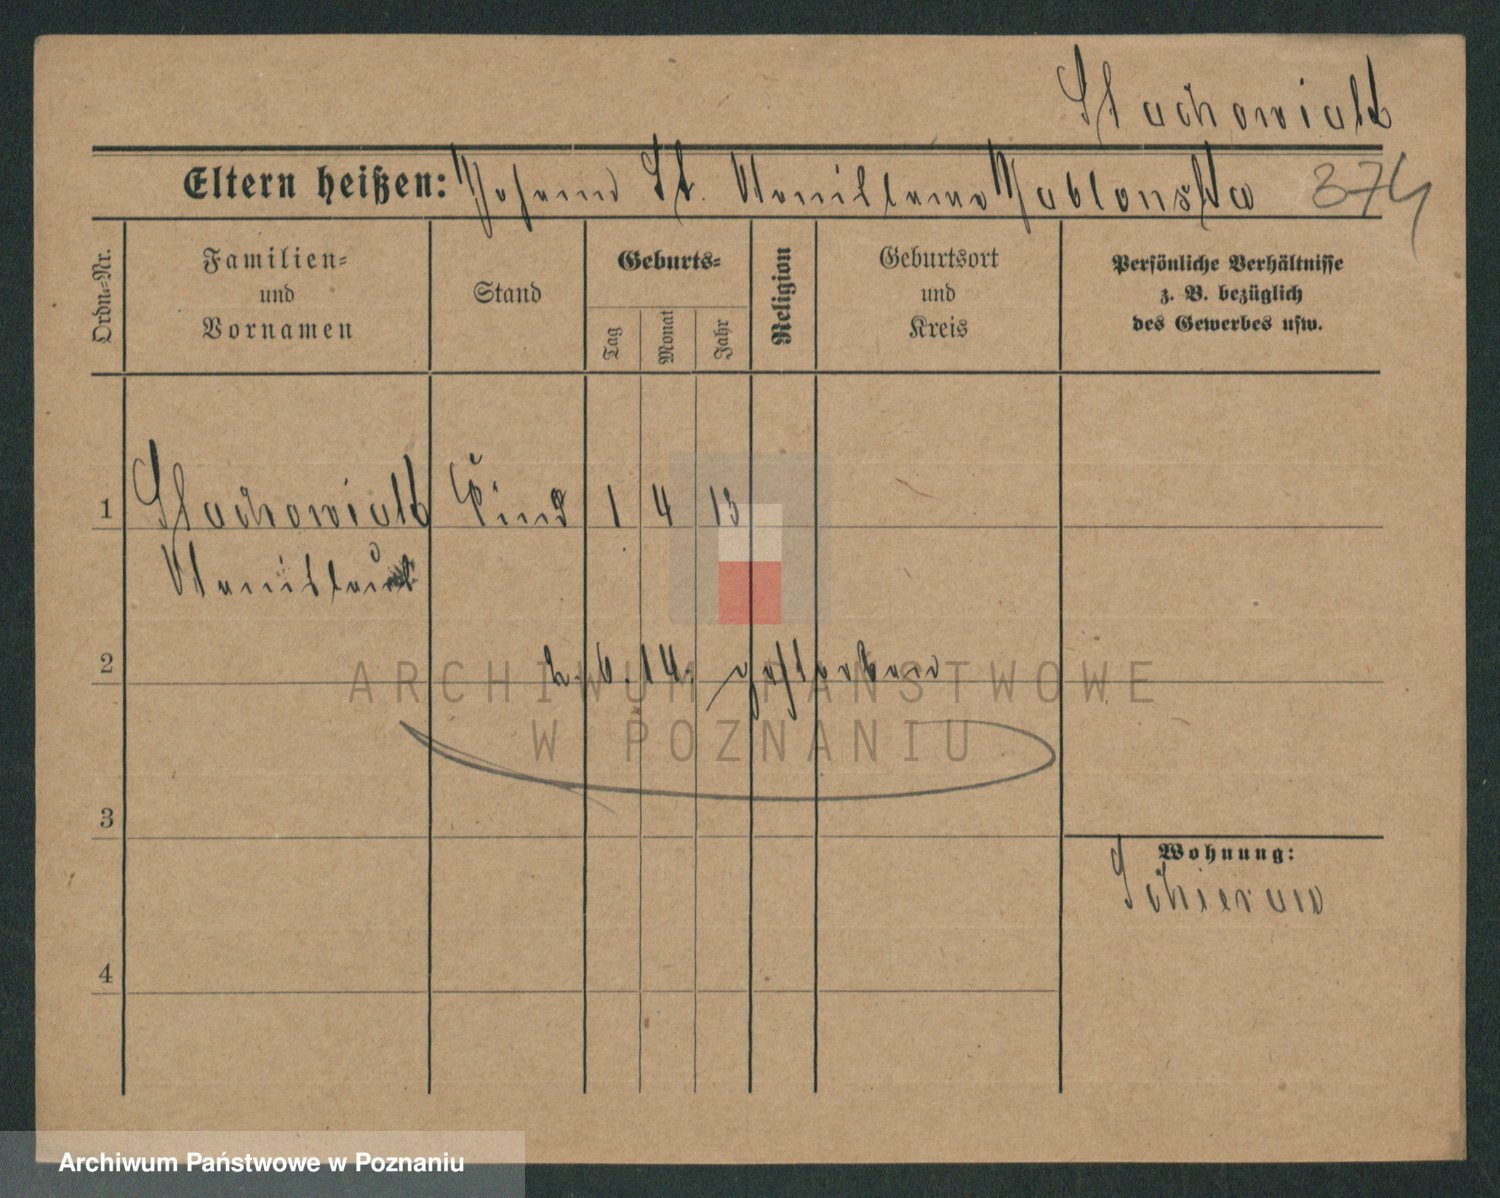 Stachowiak
Eltern heißen: Johann St. Stanislawa Jablonska 374
Ordn.-Nr.
Familien-
und
Vornamen
Stand
Geburts-
Tag
Monat
Jahr
Religion
Geburtsort
und
Kreis
Persönliche Verhältnisse
z. B. bezüglich
des Gewerbes usw.
1 Stachowiak Kind 1 4 13
Stanislaus
2 2. 6. 14. gestorben
ARCHIWUM PAŃSTWOWE
W POZNANIU
3
Wohnung:
Schierau
4
Archiwum Państwowe w Poznaniu